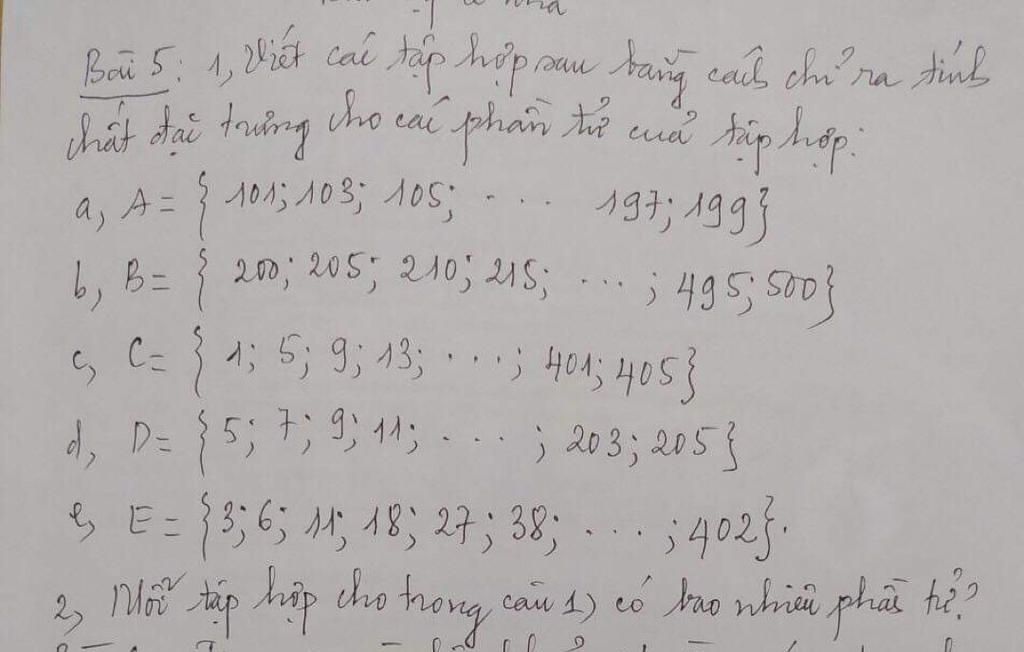 Bài 5: 1, Viết các tập hợp sau bằng cách chỉ ra tính
chất đặc trưng cho các phần tử của tập hợp:
a, A = { 101; 103; 105; ... 197; 199}
b, B = { 200; 205; 210; 215; ... ; 495; 500}
c, C = { 1; 5; 9; 13; ... ; 401; 405}
d, D = { 5; 7; 9; 11; ... ; 203; 205}
e, E = {3; 6; 11; 18; 27; 38; ... ; 402}.
2, Mỗi tập hợp cho trong câu 1) có bao nhiêu phần tử?